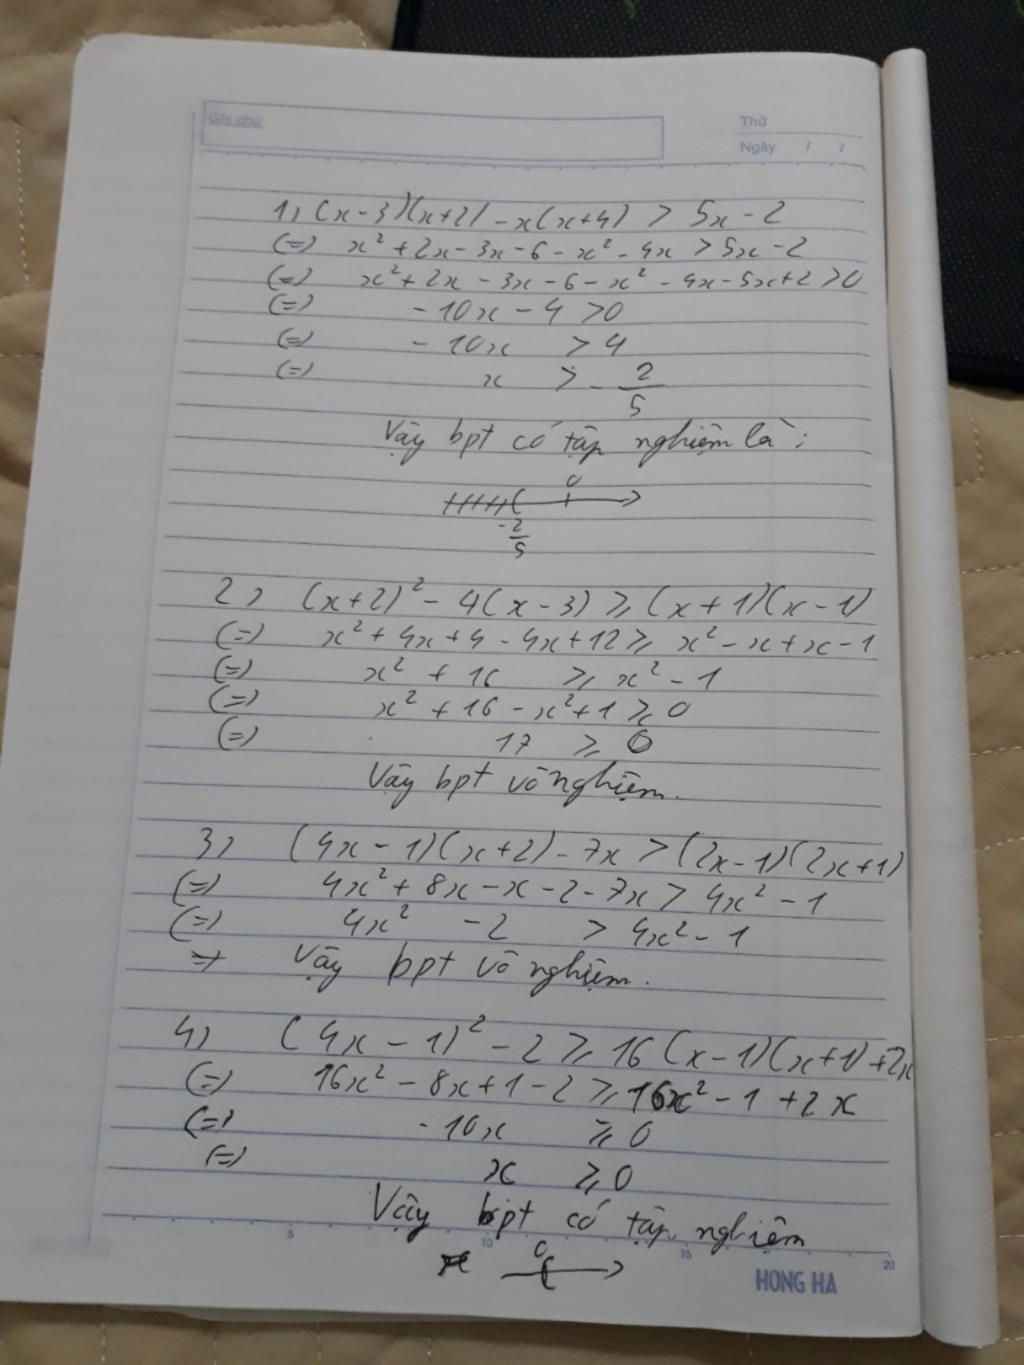 Ghi chú:
Thứ
Ngày / /
1) (x-3)(x+2) - x(x+4) > 5x - 2
(=) x² + 2x - 3x - 6 - x² - 4x > 5x - 2
(=) x² + 2x - 3x - 6 - x² - 4x - 5x + 2 > 0
(=) - 10x - 4 > 0
(=) - 10x > 4
(=) x > - 2/5
Vậy bpt có tập nghiệm là:
0
-2/5
2) (x+2)² - 4(x-3) ≥ (x+1)(x-1)
(=) x² + 4x + 4 - 4x + 12 ≥ x² - x + x - 1
(=) x² + 16 ≥ x² - 1
(=) x² + 16 - x² + 1 ≥ 0
(=) 17 ≥ 0
Vậy bpt vô nghiệm.
3) (4x - 1)(x+2) - 7x > (2x-1)(2x+1)
(=) 4x² + 8x - x - 2 - 7x > 4x² - 1
(=) 4x² - 2 > 4x² - 1
=> Vậy bpt vô nghiệm.
4) (4x - 1)² - 2 ≥ 16 (x-1)(x+1) + 2x
(=) 16x² - 8x + 1 - 2 ≥ 16x² - 1 + 2x
(=) - 10x ≥ 0
(=) x ≥ 0
Vậy bpt có tập nghiệm
0
5 10 15 20
HONG HA